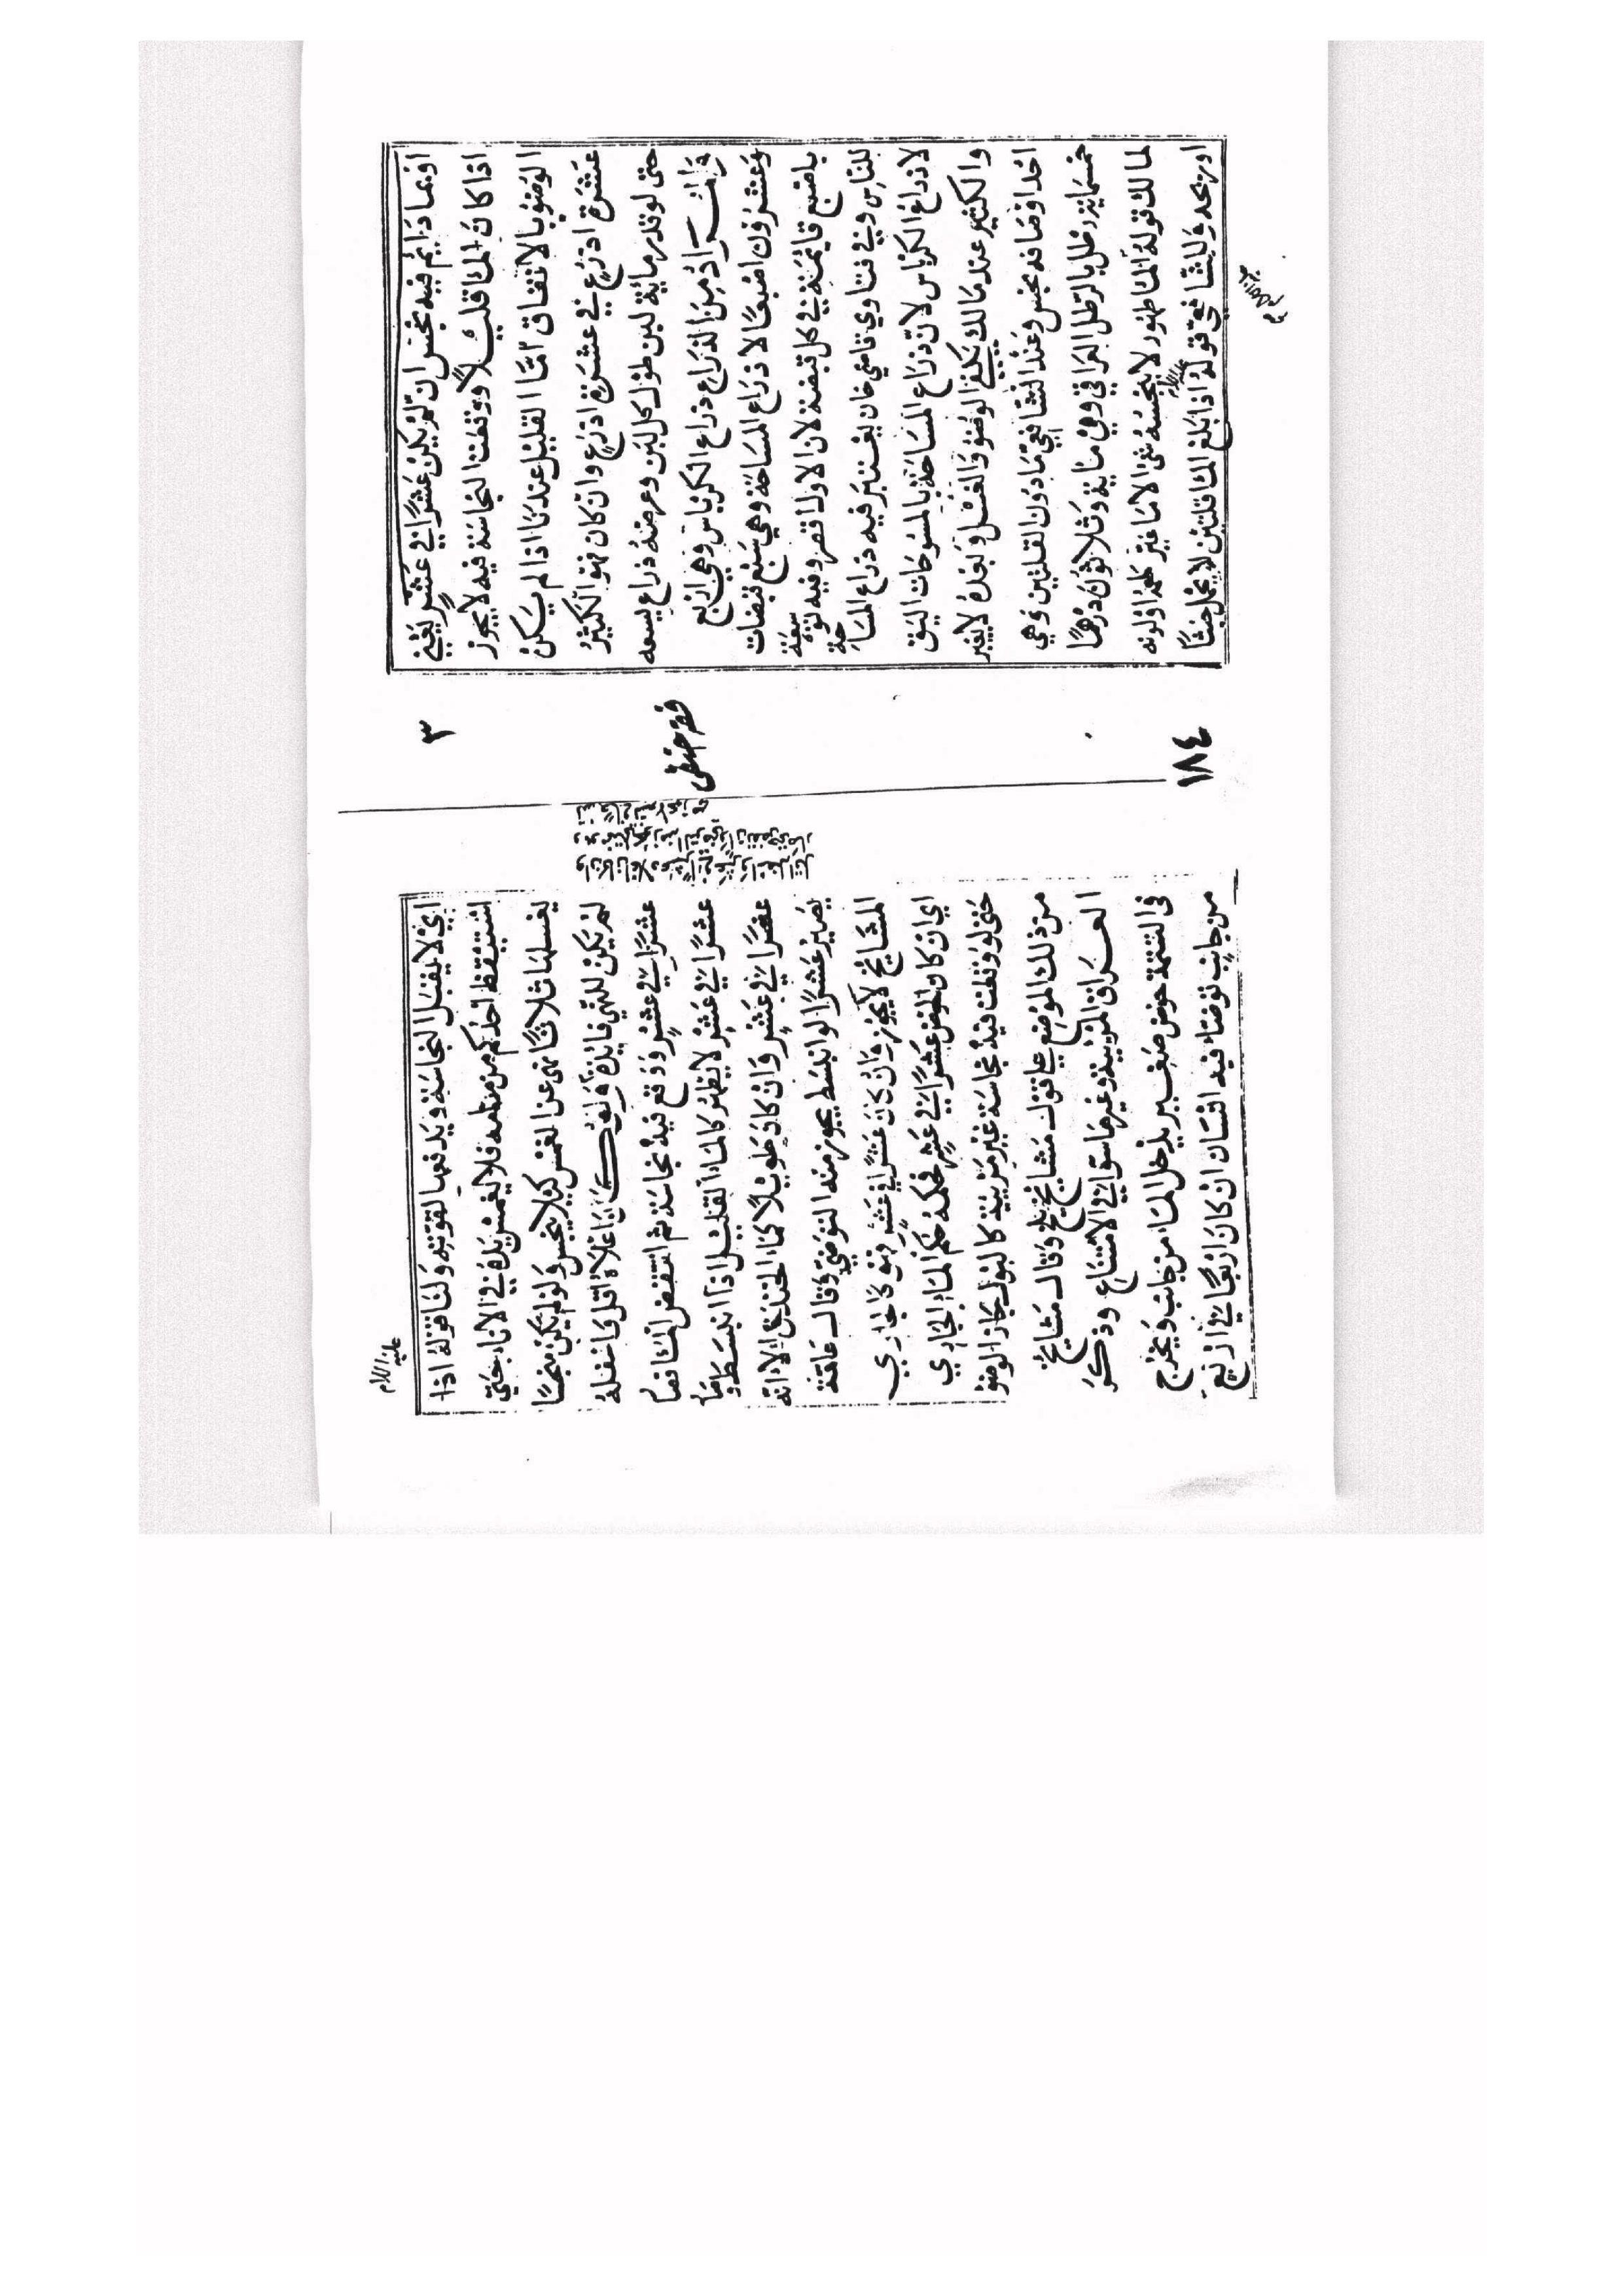 اوبماء دايم فيه نجس ان لم يكن عشرا في عشر يعني
اذا كان الماء قليلا ووقعت النجاسة فيه لا يجوز
الوضوء بالاتفاق اما القليل عندنا اذا لم يكن
عشرة اذرع في عشرة اذرع وان كان فهو الكثير
حتى لو قدر مائة لبن طول كل لبن وعرضه ذراع يسعه
والمراد من الذراع ذراع الكرباس وهي اربع
وعشرون اصبعا لا ذراع المساحة وهي سبع قبضات
باصبع قايمة في كل قبضة لان الاول اقصر وفيه توسعة
للناس وفي فتاوي قاضي خان يعتبر فيه ذراع المساحة
لا ذراع الكرباس لان ذراع المساحة بالمسوحات اليق
والكثير عند مالك يكفي الوضوء والغسل وبعده لا يغير
احد اوصافه نجس وعند الشافعي مادون القلتين وهي
خمسماية رطل بالرطل العراقي وهي ماية وثلاثون درهما
لمالك قوله الماء طهور لا ينجسه شئ الا ما غير طعمه او لونه
او ريحه وللشافعي قوله عليه السلام اذا بلغ الماء قلتين لا يحمل خبثا
٣
فقه حنفى
١٨٤
اي لا يقبل النجاسة ويدفعها لقوته ولنا قوله عليه السلام اذا
استيقظ احدكم من منامه فلا يغمس يده في الاناء حتى
يغسلها ثلاثا نهى عن الغمس كيلا ينجس ولو لم يكن نجسا
لم يكن للنهي فايدة ولو كان اعلاه اقل واسفله
عشرا في عشر ووقع فيه نجاسة ثم انتقض الماء فصار
عشرا في عشر لا يطهر كالماء القليل اذا انبسط وصار
عشرا في عشر وان كان طويلا كماء الخندق الا انه
يصير عشرا لو انبسط يجوز منه التوضي وقال عامة
المشايخ لا يجوز وان كان عشرا في عشر فهو كالجاري
اي ان كان الحوض عشرا في عشر فحكمه حكم الماء الجاري
حتى لو وقعت فيه نجاسة غير مرئية كالبول جاز الوضوء
من ذلك الموضع على قول مشايخ بلخ وقال مشايخ
العراق المرئية وغيرها سواء في الامتناع وذكر
فى التتمة حوض صغير يدخل الماء من جانب ويخرج
من جانب توضأ فيه انسان ان كان اربعا في اربع